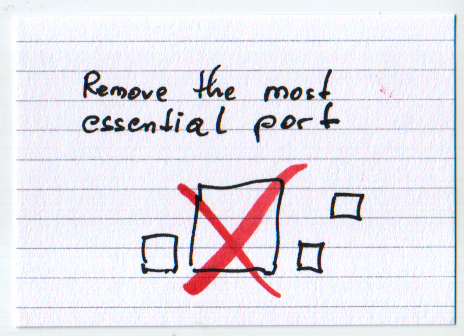 Remove the most
essential part